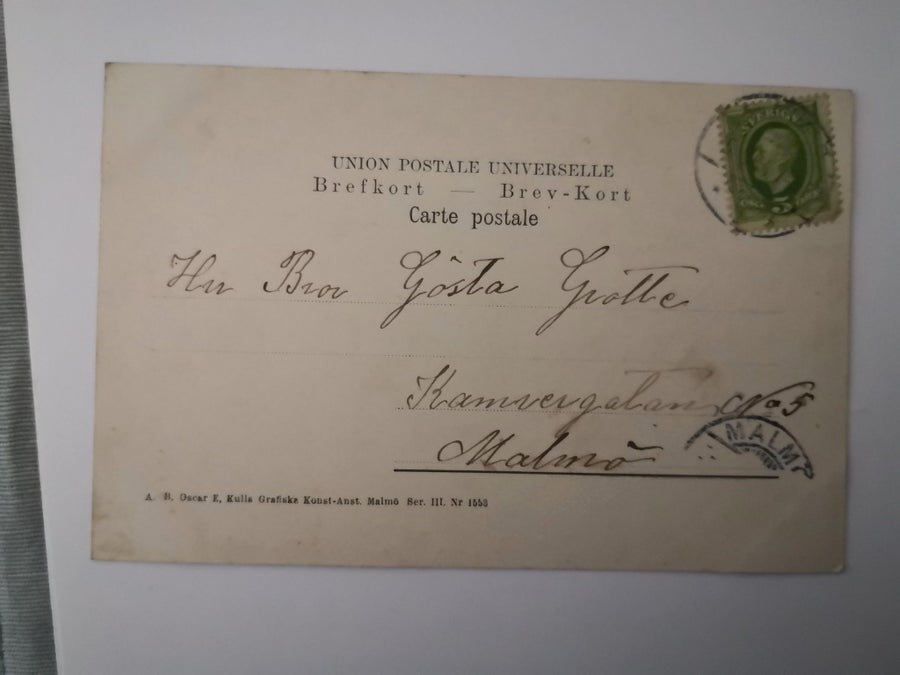 SVERIGE
FEM 5 ÖRE
UNION POSTALE UNIVERSELLE
Brefkort — Brev-Kort
Carte postale
Hrr Bror Gösta Grotte
Kamrergatan No 5
Malmö
MALMÖ
A. B. Oscar E, Kulls Grafiska Konst-Anst. Malmö Ser. III. Nr 1553